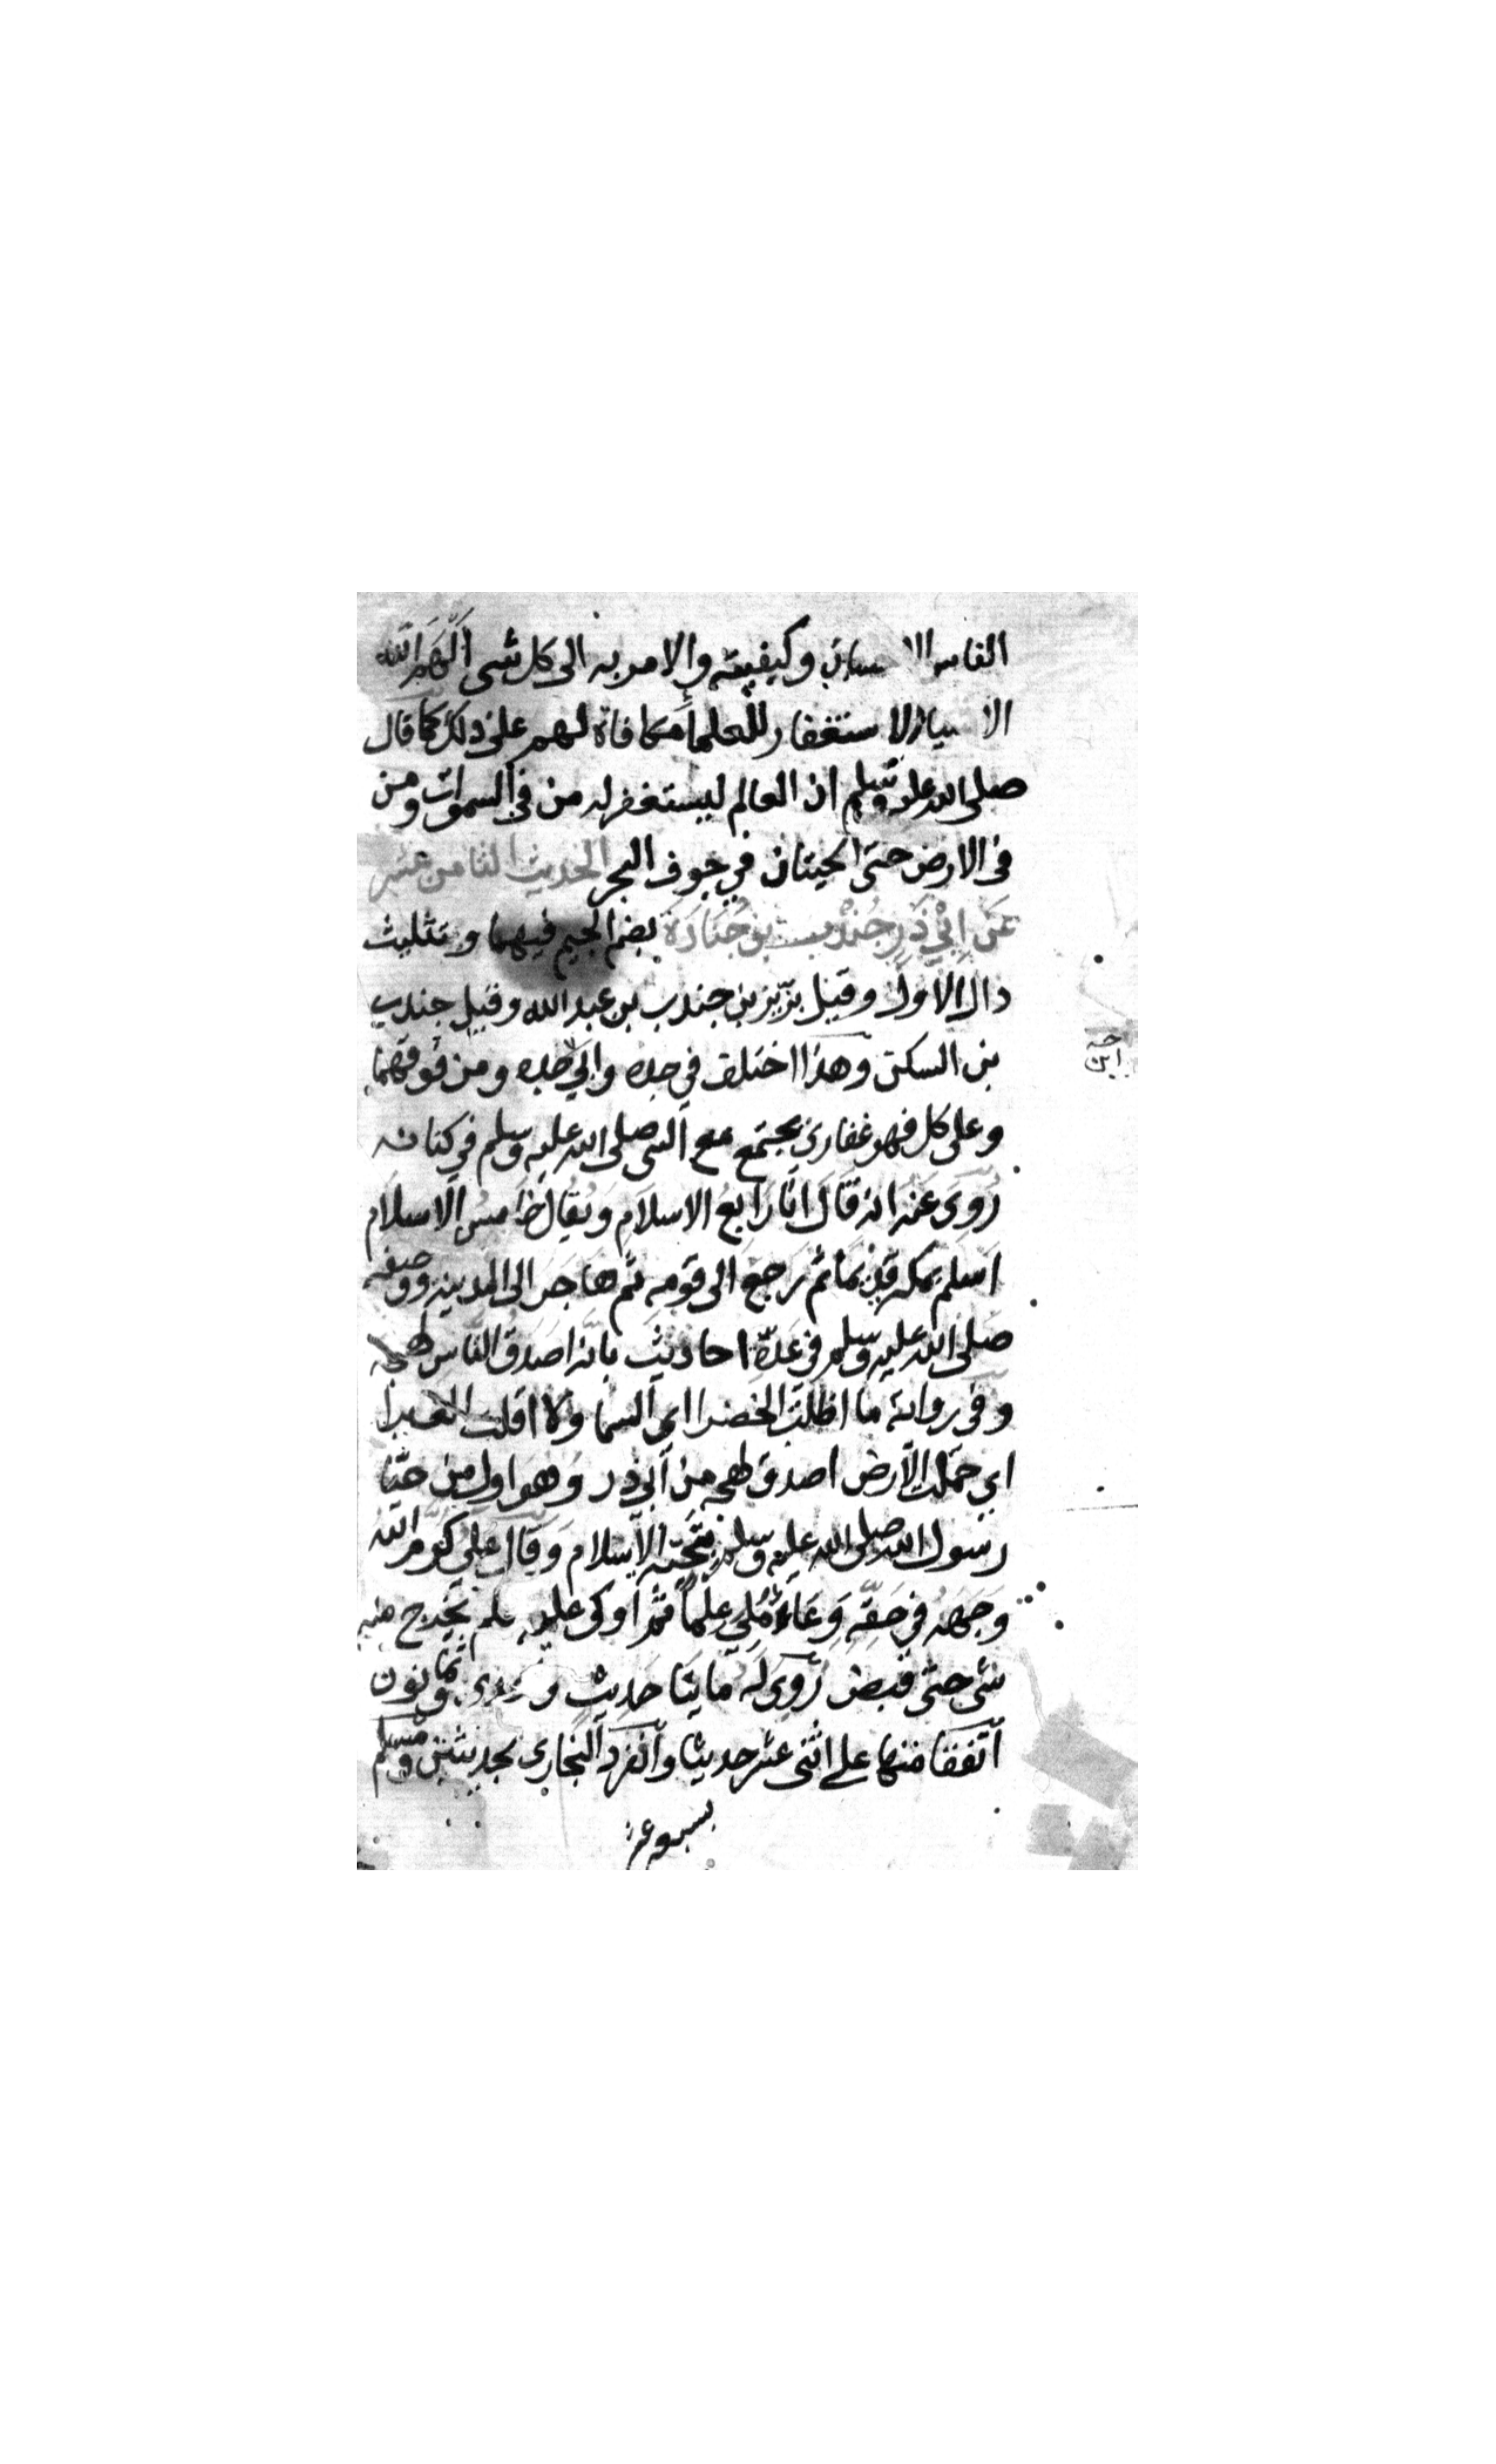 الناس الاحسان وكيفيته والامر به الى كل شى ألهم الله
الاشيا الاستغفار للعلما مكافاة لهم على ذلك كما قال
صلى الله عليه وسلم ان العالم ليستغفر له من في السموات ومن
فى الارض حتى الحيتان في جوف البحر الحديث الثامن عشر
عَن اَبِي ذَرٍ جُنْدب بن جُنَادَة بضم الجيم فيهما وتثليث
دال الاول وقيل بزير بن جندب بن عبد الله وقيل جندب
بن السكن وهذا اختلف في جده وابي جده ومن فوقهما
وعلى كل فهو غفاري يجتمع مع النبى صلى الله عليه وسلم في كنانه
رُوِىَ عَنه انه قَالَ انَا رَابِعُ الاسلَامِ وَيُقِال خَامِسُ الاسلَام
اَسلم بمكه قديما ثم رجع الى قومه ثم هاجر الى المدينه ووصفه
صَلى الله عليه وسلم فى عدّة احاديث بانه اصدق الناس لهجه
وفى رواية ما اظلت الخضرا اى السما ولا اقلت الغبرا
اى حملت الارض اصدق لهجه من ابى ذر وهو اول من حيّا
رسول الله صلى الله عليه وسلم بتحيّة الاسلام وَقَال على كرم الله
وَجهَهُ فِي حَقّه وِعَاءٌ مُلِى علمًا ثم اوكى عليه فلم يخرج منه
شى حتى قبض رُوِىَ لَهُ مايتا حديث و وثمانون
اتفقا منها على اثنى عشر حديثا وانفرد البخارى بحديثين ومسلم
بسبعة عشر
ابن